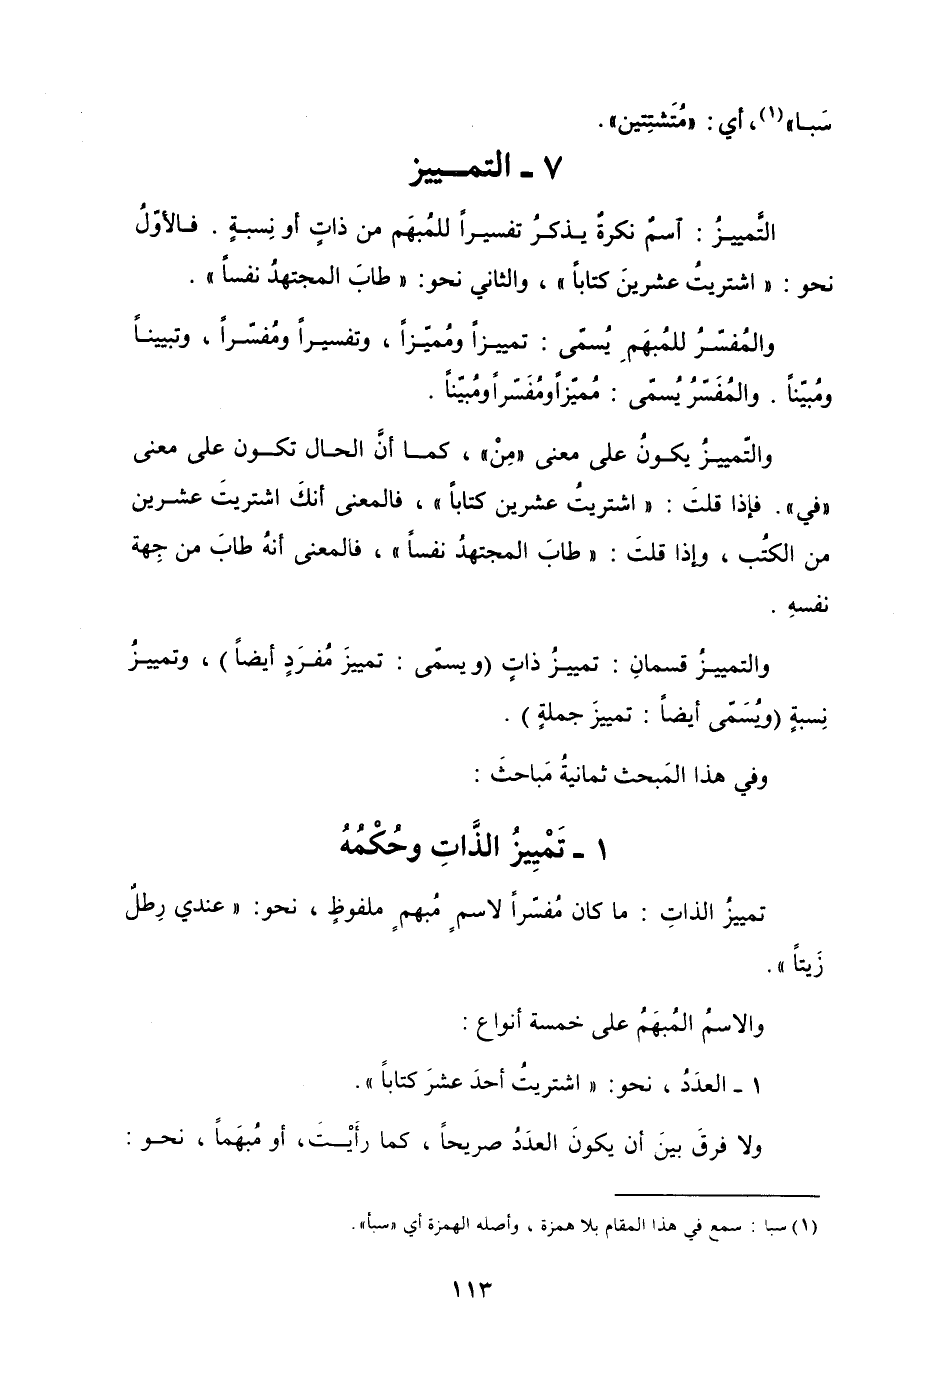 سَبـا»(١)، أي : «مُتَشتِتين» .
٧ ـ التمـــييز
التَّمييـزُ : آسمٌ نكرةٌ يـذكـرُ تفسيـراً للمُبهَم من ذاتٍ أو نِسبـةٍ . فـالأوّلُ
نحو : « اشتريتُ عشرينَ كتاباً » ، والثاني نحو: « طابَ المجتهدُ نفساً » .
والمُفسّـرُ للمُبهَمِ يُسمّى : تمييـزاً ومُميّـزاً ، وتفسيـراً ومُفسّـراً ، وتبيينـاً
ومُبيّناً . والمُفَسّرُ يُسمّى : مُميّزاً ومُفَسّراً ومُبيّناً .
والتّمييـزُ يكـونُ على معنى «مِنْ» ، كمـا أنَّ الحال تكـون على معنى
«في». فإذا قلتَ : « اشتريتُ عشرين كتاباً » ، فالمعنى أنكَ اشتريتَ عشـرين
من الكتُب ، وإذا قلتَ : « طابَ المجتهدُ نفساً » ، فالمعنى أنهُ طابَ من جِهة
نفسهِ .
والتمييـزُ قسمانِ : تمييـزُ ذاتٍ (ويسمّى : تمييزَ مُفـرَدٍ أيضاً ) ، وتمييـزُ
نِسبةٍ (ويُسَمّى أيضاً : تمييزَ جملةٍ ) .
وفي هذا المَبحث ثمانيةُ مَباحثَ :
١ ـ تَمْيِيزُ الذَّاتِ وحُكْمُهُ
تمييزُ الذاتِ : ما كان مُفسّراً لاسمٍ مُبهمٍ ملفوظٍ ، نحو: « عندي رِطلٌ
زَيتاً ».
والاسمُ المُبهَمُ على خمسة أنواع :
١ ـ العدَدُ ، نحو: « اشتريتُ أحدَ عشرَ كتاباً ».
ولا فرقَ بينَ أن يكونَ العدَدُ صريحاً ، كما رأَيْـتَ، أو مُبهَماً ، نحـو :
(١) سبا : سمع في هذا المقام بلا همزة ، وأصله الهمزة أي «سبأ».
١١٣